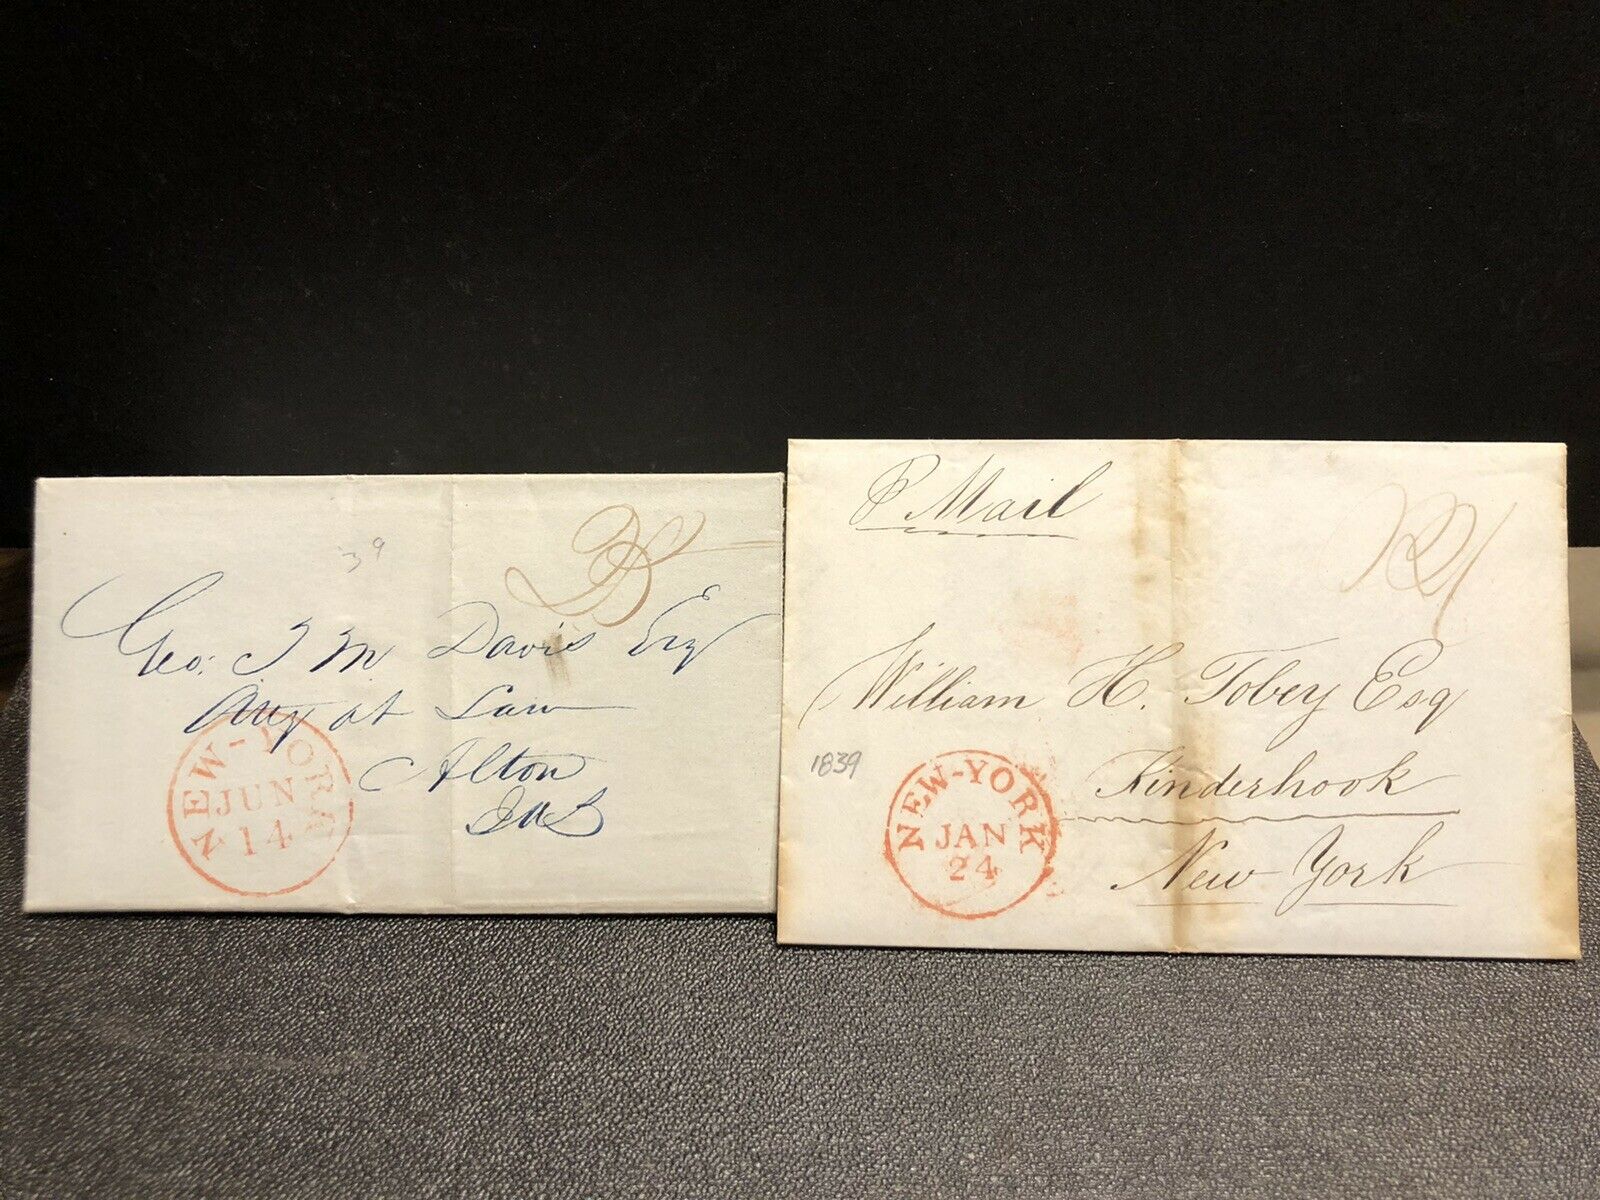 25
'39
Geo: T M Davis Esq
Atty at Law
Alton
Ills
NEW-YORK
JUN
14
P Mail
12½
William H. Tobey Esq
Kinderhook
New York
1839
NEW-YORK
JAN
24